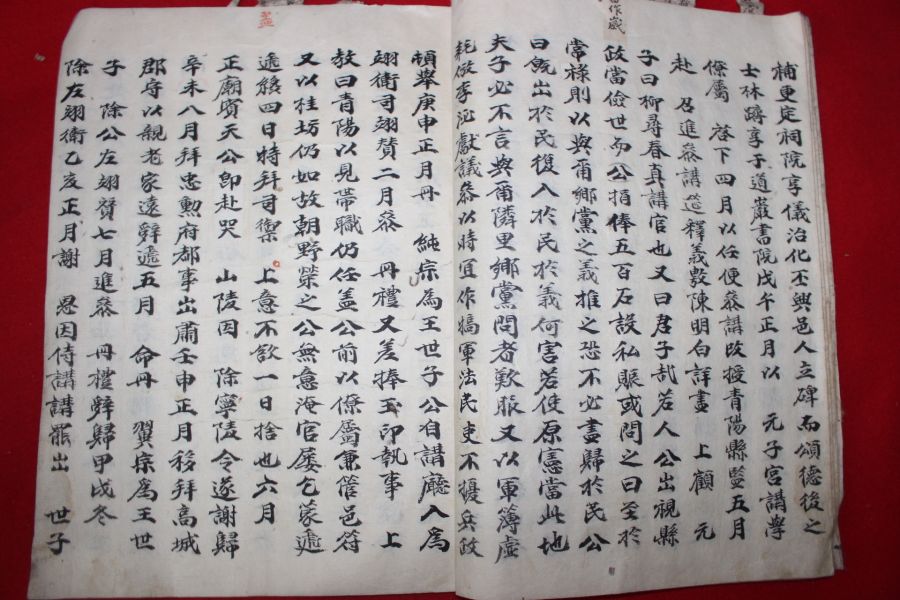 補更定祠院享儀治化丕興邑人立碑而頌德後之
士林躋享于道巖書院戊午正月以 元子宮講學
僚屬 啓下四月以任便叅講改授青陽縣監五月
赴 召進叅講筵釋義敷陳明白詳盡 上顧 元
子曰柳尋春真講官也又曰君子哉若人公出視縣
政當儉世而公捐俸五百石設私賑或問之曰至於
常祿則以與爾鄉黨之義推之恐不必盡歸於民公
曰旣出於民復入於民於義何害若使原憲當此地
夫子必不言與爾隣里鄉黨問者歎服又以軍簿虛
耗倣李泌獻議叅以時宜作犒軍法民吏不擾兵政
頓擧庚申正月丹 純宗為王世子公自講廳入為
翊衛司翊贊二月叅 丹禮又差捧玉印執事 上
敎曰青陽以見帶職仍任盖公前以僚屬兼管邑符
又以桂坊仍如故朝野榮之公無意淹官屢乞箋遞
遞纔四日特拜司禦 上意不欲一日捨也六月
正廟賓天公卽赴哭 山陵因 除寧陵令遂謝歸
辛未八月拜忠勳府都事出肅壬申正月移拜高城
郡守以親老家遠辭遞五月 命丹 翼宗為王世
子 除公左翊贊七月進叅 丹禮辭歸甲戌冬
除左翊衛乙亥正月謝 恩因侍講講罷出 世子
盖
作歲